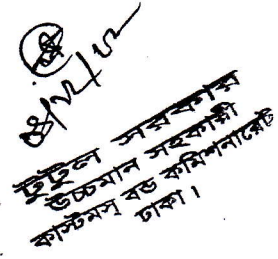 টুটুল সরকার
উচ্চমান সহকারী
কাস্টমস্ বন্ড কমিশনারেট
ঢাকা।